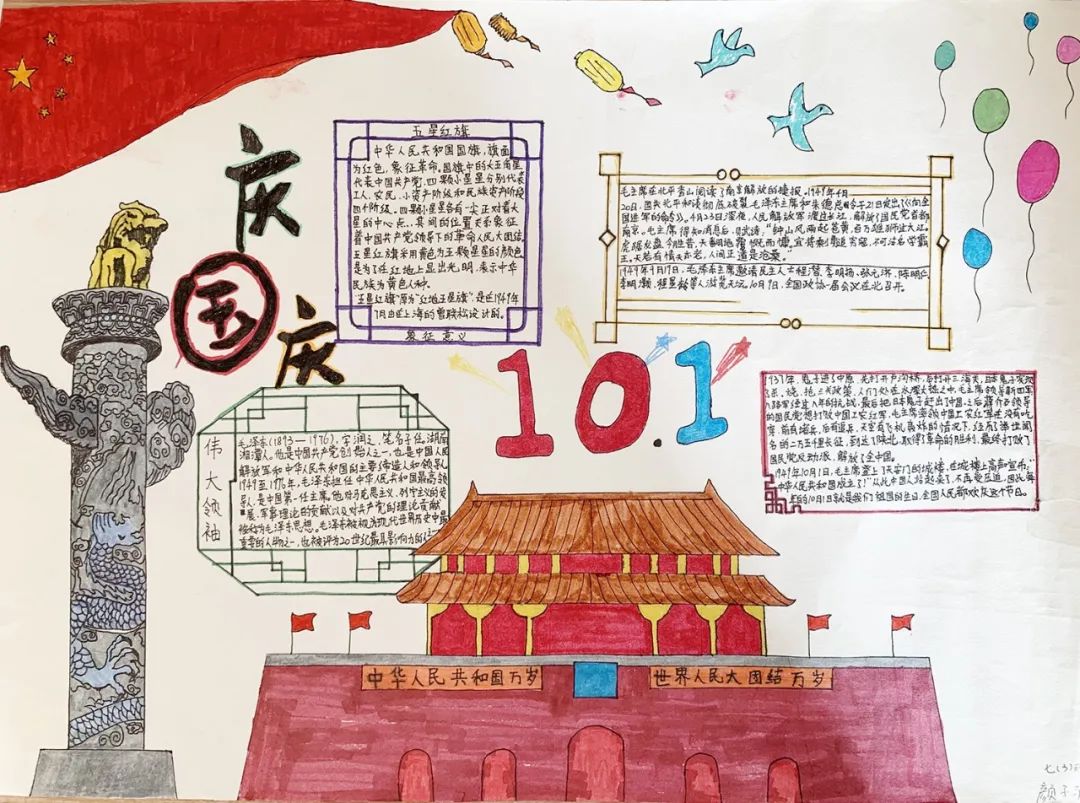 庆
国
庆
五星红旗
中华人民共和国国旗,旗面
为红色,象征革命。国旗中的大五角星
代表中国共产党,四颗小星星分别代表
工人、农民、小资产阶级和民族资产阶级
四个阶级。四颗小星星各有一尖正对着大
星的中心点,其间的位置关系象征
着中国共产党领导下的革命人民大团结。
五星红旗采用黄色为五颗星星的颜色
是为了在红地上显出光明,表示中华
民族为黄色人种。
"五星红旗"原为"红地五星旗",是在1949年
7月由在上海的曾联松设计的。
象征意义
毛主席在北平香山阅读了南京解放的捷报。1949年4月
20日,国共北平和谈彻底破裂,毛泽东主席和朱德总司令于21日发出了《向全
国进军的命令》。4月23日深夜,人民解放军渡过长江,解放了国民党首都
南京。毛主席得知消息后,赋诗:"钟山风雨起苍黄,百万雄师过大江。
虎踞龙盘今胜昔,天翻地覆慨而慷。宜将剩勇追穷寇,不可沽名学霸
王。天若有情天亦老,人间正道是沧桑。"
1949年9月19日,毛泽东主席邀请民主人士程潜、李明扬、张元济、陈明仁、
李明灏、
等人游览天坛。10月9日,全国政协一届会议在北召开。
10.1
伟大领袖
毛泽东(1893—1976),字润之,笔名子任,湖南
湘潭人。他是中国共产党创始人之一,也是中国人民
解放军和中华人民共和国的主要缔造人和领导人
1949至1976年,毛泽东担任中华人民共和国最高领
导人,是中国第一任主席。他对马克思主义、列宁主义的发
展、军事理论的贡献以及对共产党的理论贡献
被称为毛泽东思想。毛泽东被视为现代世界历史中最
重要的人物之一,也被评为20世纪最具影响力的人之一
1937年,鬼子进了中原,先打开卢沟桥,后打开三海关,日本鬼子发动
了杀、烧、抢三光政策,人们处在水深火热之中,毛主席领导新四军
八路军经过八年的抗战,最后把日本鬼子赶出了中国。之后蒋介石领导
的国民党想打败中国工农红军,毛主席率领中国工农红军在没有吃
穿,前有堵兵,后有追兵,天空有飞机轰炸的情况下,经历了举世闻
名的二万五千里长征,到达了陕北,取得了革命的胜利,最终打败了
国民党反动派,解放了全中国。
1949年10月1日,毛主席登上了天安门的城楼,在城楼上高声宣布:"
中华人民共和国成立了!"从此中国人站起来了,不再受压迫,因此每
年的10月1日就是我们祖国的生日,全国人民都欢庆这个节日。
中华人民共和国万岁
世界人民大团结万岁
七(3)
颜子